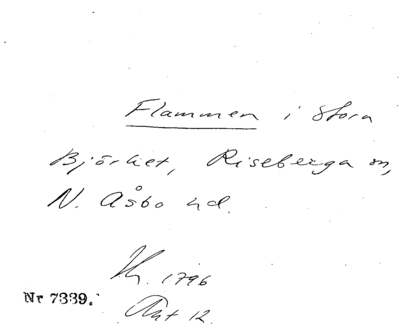 Flammen i Stora
Björket, Riseberga sn,
N. Åsbo hd.
1796
Nr 7339.
Akt 12.